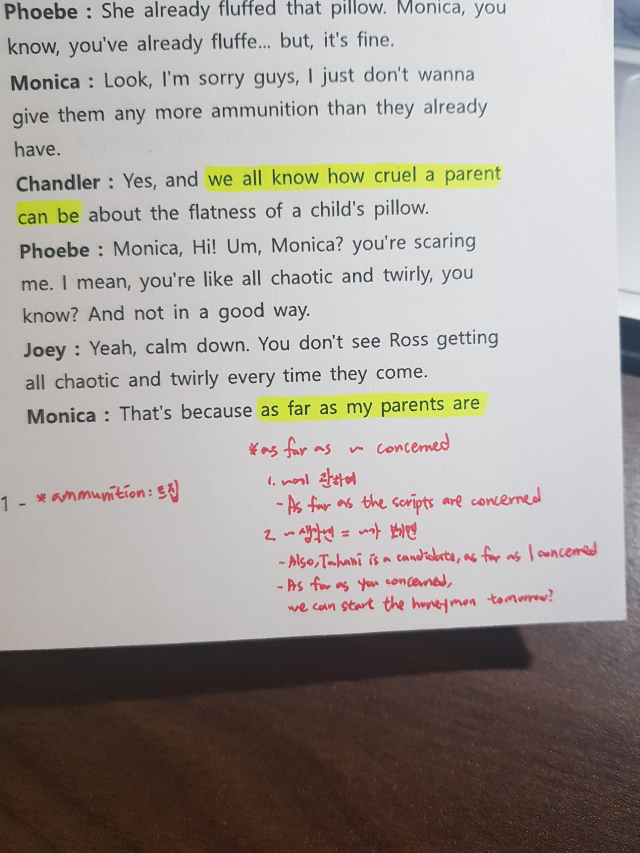 Phoebe : She already fluffed that pillow. Monica, you
know, you've already fluffe... but, it's fine.
Monica : Look, I'm sorry guys, I just don't wanna
give them any more ammunition than they already
have.
Chandler : Yes, and we all know how cruel a parent
can be about the flatness of a child's pillow.
Phoebe : Monica, Hi! Um, Monica? you're scaring
me. I mean, you're like all chaotic and twirly, you
know? And not in a good way.
Joey : Yeah, calm down. You don't see Ross getting
all chaotic and twirly every time they come.
Monica : That's because as far as my parents are
*as far as ~ concerned
1. ~에 관하여
- As far as the scripts are concerned
1 - *ammunition:
2. ~생각엔 = ~가 보기엔
- Also, Tahani is a candidate, as far as I concerned
- As far as you concerned,
we can start the honeymon tomorrow?